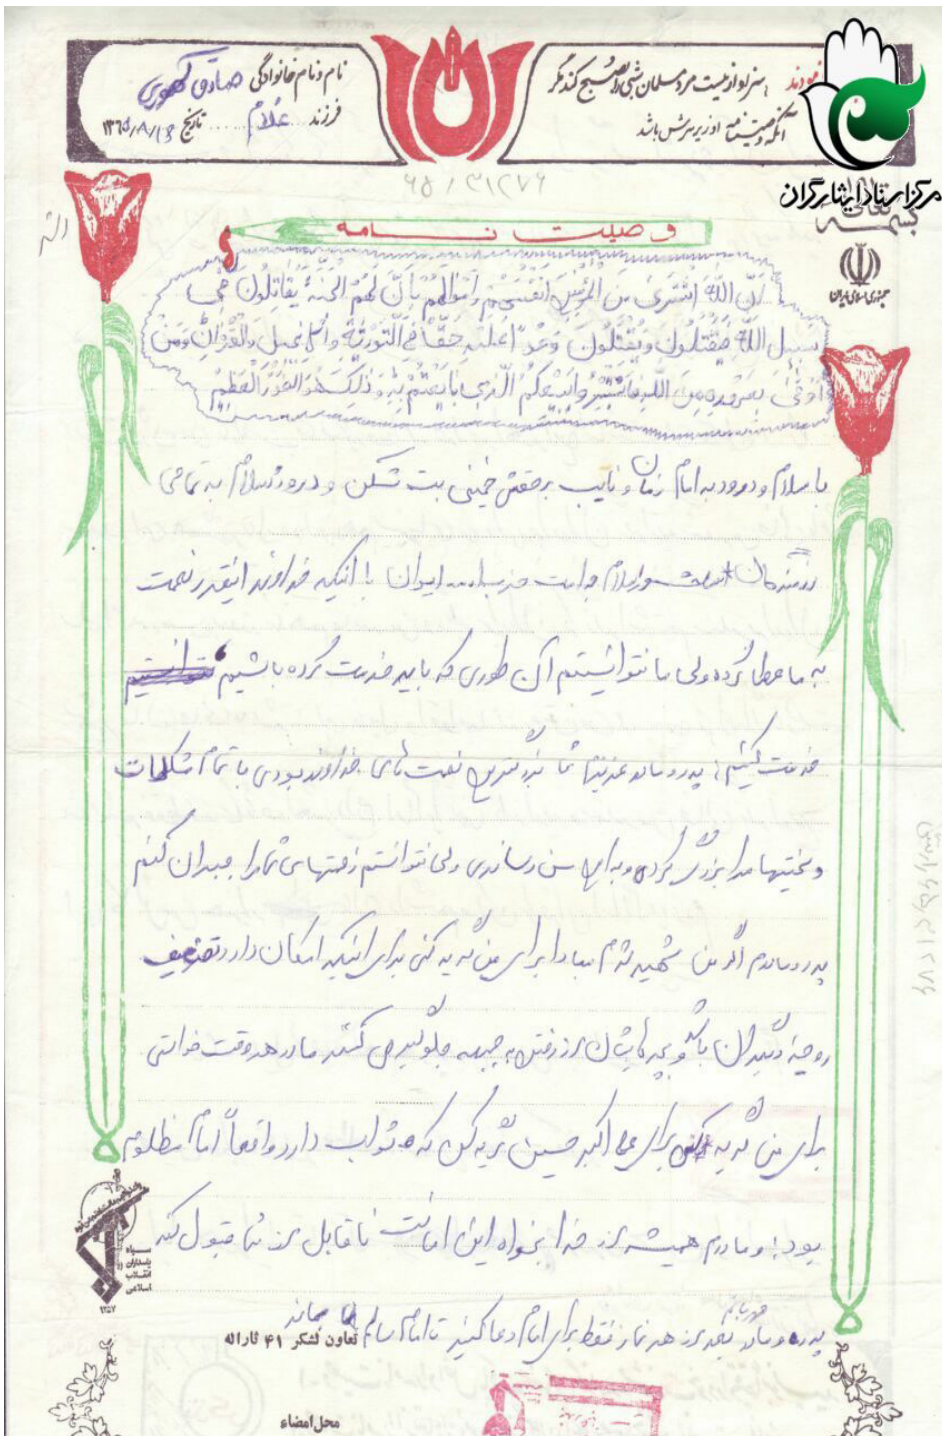 نمودند سزاوار نیست مرد مسلمان شبی را صبح کند مگر
آنکه وصیتنامه او زیر سرش باشد
نام و نام خانوادگی صادق
فرزند غلام تاریخ ۱۳۶۵/۸/۱۳
مرکز اسناد ایثارگران
بسمه تعالی
۶۵/۳۱۲۷۶
وصیت نامه
جمهوری اسلامی ایران
إن الله اشتری من المؤمنین أنفسهم وأموالهم بأن لهم الجنة یقاتلون فی
سبیل الله فیقتلون ویقتلون وعدا علیه حقا فی التوریة والانجیل والقرآن ومن
أوفی بعهده من الله فاستبشروا ببیعکم الذی بایعتم به وذلک هو الفوز العظیم
با سلام و درود به امام زمان و نایب برحقش خمینی بت شکن و درود و سلام به تمامی
رزمندگان اسلام و امت حزب الله ایران با اینکه خداوند اینقدر نعمت
به ما عطا کرده ولی ما نتوانستیم آن طوری که باید خدمت کرده باشیم
خدمت کنیم؛ پدر و مادر عزیزم شما بزرگترین نعمت های خداوند بودی با تمام مشکلات
و سختیها مرا بزرگ کرده و به این سن رساندی ولی نتوانستم زحمتهای شما را جبران کنم
پدر و مادرم اگر من شهید شدم مبادا برای من گریه کنی برای اینکه امکان دارد تضعیف
روحیه دیگران باشد و بچه هایشان از رفتن به جبهه جلوگیری کنند مادر هر وقت خواستی
برای من گریه کنی برای علی اکبر حسین گریه کن که ثواب دارد واقعاً امام مظلوم
بود؛ و مادرم همیشه از خدا بخواه این امانت ناقابل از شما قبول کند
پدر و مادر بعد از هر نماز فقط برای امام دعا کنید تا امام سالم بماند
سپاه
پاسداران
انقلاب
اسلامی
۱۳۵۷
تعاون لشکر ۴۱ ثاراله
محل امضاء